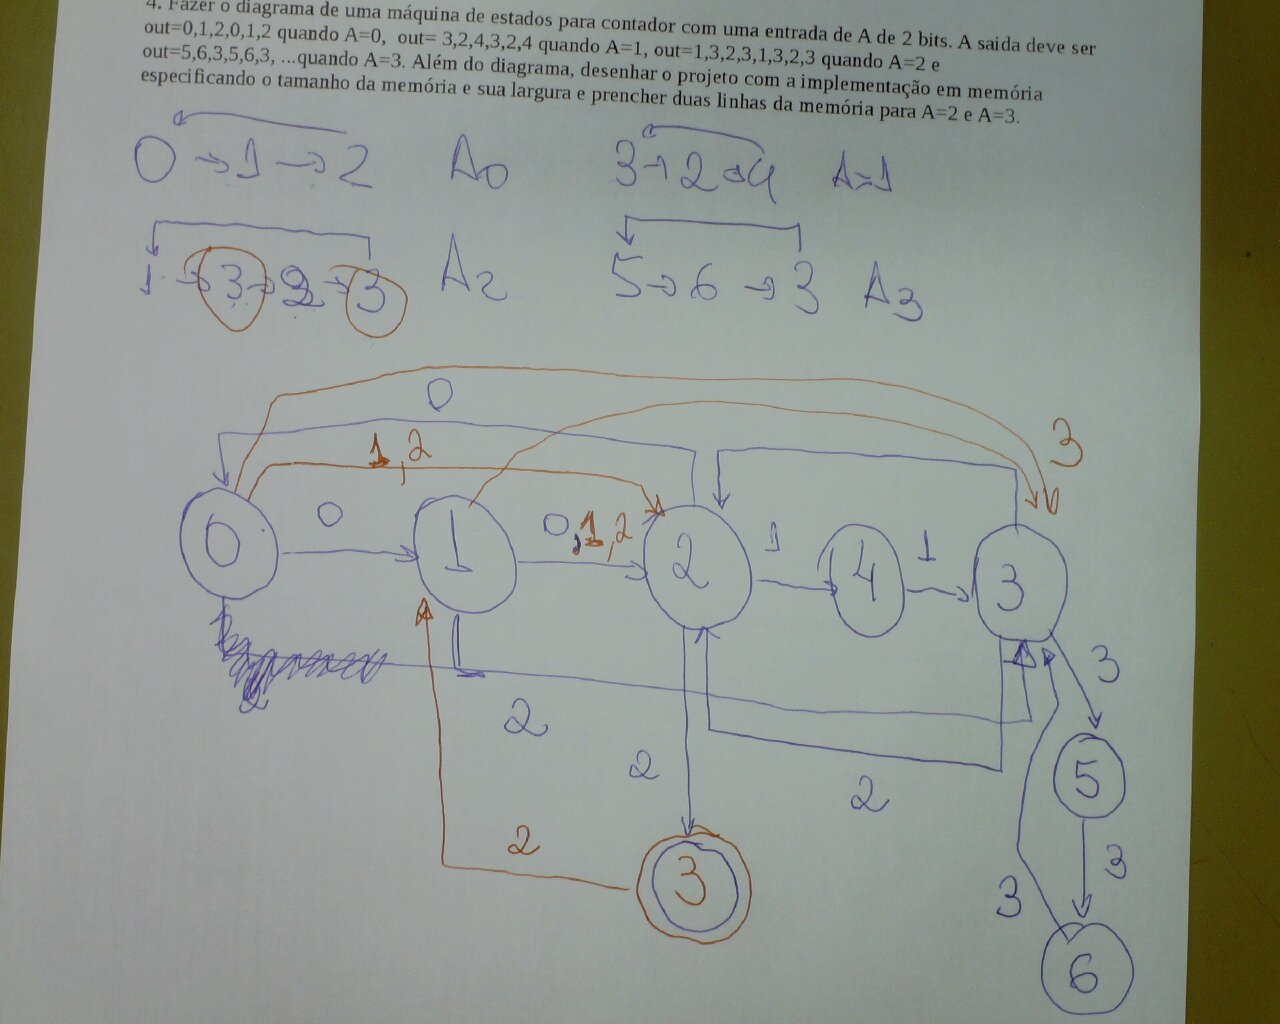 4. Fazer o diagrama de uma máquina de estados para contador com uma entrada de A de 2 bits. A saida deve ser
out=0,1,2,0,1,2 quando A=0, out= 3,2,4,3,2,4 quando A=1, out=1,3,2,3,1,3,2,3 quando A=2 e
out=5,6,3,5,6,3, ...quando A=3. Além do diagrama, desenhar o projeto com a implementação em memória
especificando o tamanho da memória e sua largura e prencher duas linhas da memória para A=2 e A=3.
0→1→2 A0 3→2→4 A=1
1→3→2→3 A2 5→6→3 A3
0
1,2 3
0 0,1,2 1 1
0 1 2 4 3
3
2 2
2 2
5
2 3
3 3
6